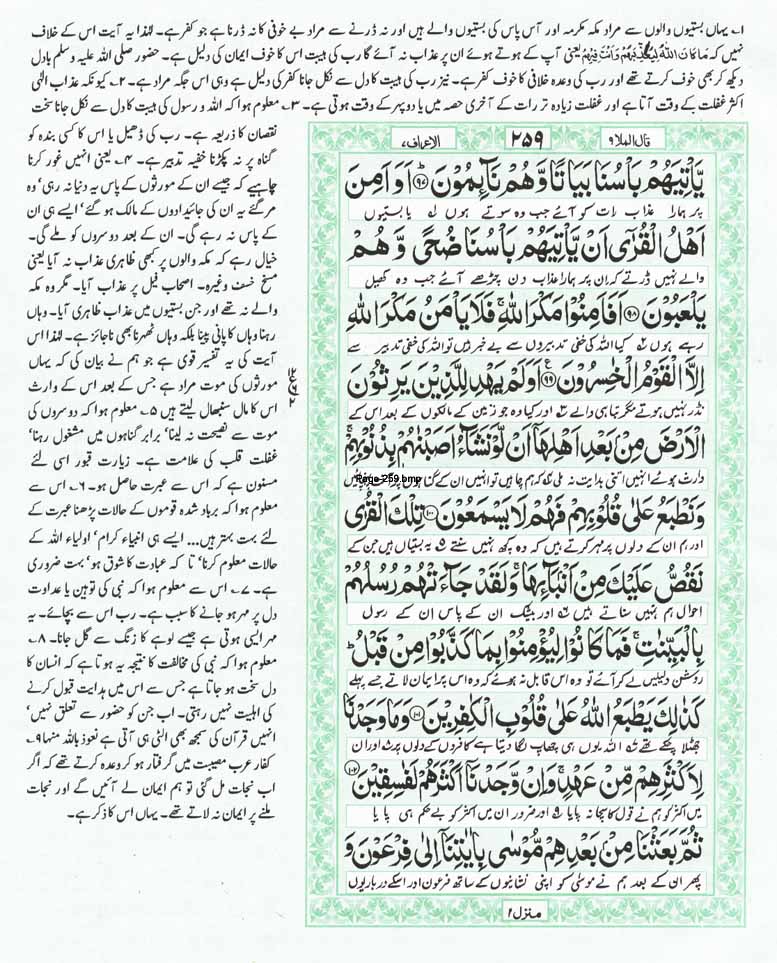 ۱۔ یہاں بستیوں والوں سے مراد مکہ مکرمہ اور آس پاس کی بستیوں والے ہیں اور نہ ڈرنے سے مراد بے خوفی کا نہ ڈرنا ہے جو کفر ہے۔ لہٰذا یہ آیت اس کے خلاف
نہیں کہ مَا کَانَ اللّٰهُ لِیُعَذِّبَهُمْ وَاَنْتَ فِیْهِمْ یعنی آپ کے ہوتے ہوئے ان پر عذاب نہ آئے گا رب کی ہیبت اس کا خوف ایمان کی دلیل ہے۔ حضور صلی اللہ علیہ وسلم بادل
دیکھ کر بھی خوف کرتے تھے اور رب کی وعدہ خلافی کا خوف کفر ہے۔ نیز رب کی ہیبت کا دل سے نکل جانا کفر کی دلیل ہے وہی اس جگہ مراد ہے۔ ۲۔ کیونکہ عذاب الٰہی
اکثر غفلت کے وقت آتا ہے اور غفلت زیادہ تر رات کے آخری حصہ میں یا دوپہر کے وقت ہوتی ہے۔ ۳۔ معلوم ہوا کہ اللہ و رسول کی ہیبت کا دل سے نکل جانا سخت
نقصان کا ذریعہ ہے۔ رب کی ڈھیل یا اس کا کسی بندہ کو
گناہ پر نہ پکڑنا خفیہ تدبیر ہے۔ ۴۔ یعنی انہیں غور کرنا
چاہیے کہ جیسے ان کے مورثوں کے پاس یہ دنیا نہ رہی‘ وہ
مر گئے یہ ان کی جائیدادوں کے مالک ہو گئے‘ ایسے ہی ان
کے پاس نہ رہے گی۔ ان کے بعد دوسروں کو ملے گی۔
خیال رہے کہ مکہ والوں پر کبھی ظاہری عذاب نہ آیا یعنی
مسخ خسف وغیرہ۔ اصحاب فیل پر عذاب آیا۔ مگر وہ مکہ
والے نہ تھے اور جن بستیوں میں عذاب ظاہری آیا۔ وہاں
رہنا وہاں کا پانی پینا بلکہ وہاں ٹھہرنا بھی ناجائز ہے۔ لہٰذا اس
آیت کی یہ تفسیر قوی ہے جو ہم نے بیان کی کہ یہاں
مورثوں کی موت مراد ہے جس کے بعد اس کے وارث
اس کا مال سنبھال لیتے ہیں ۵۔ معلوم ہوا کہ دوسروں کی
موت سے نصیحت نہ لینا‘ برابر گناہوں میں مشغول رہنا‘
غفلت قلب کی علامت ہے۔ زیارت قبور اسی لئے
مسنون ہے کہ اس سے عبرت حاصل ہو۔ ۶۔ اس سے
معلوم ہوا کہ برباد شدہ قوموں کے حالات پڑھنا عبرت کے
لئے بہت بہتر ہیں... ایسے ہی انبیاء کرام‘ اولیاء اللہ کے
حالات معلوم کرنا‘ تا کہ عبادت کا شوق ہو‘ بہت ضروری
ہے۔ ۷۔ اس سے معلوم ہوا کہ نبی کی توہین یا عداوت
دل پر مہر ہو جانے کا سبب ہے۔ رب اس سے بچائے۔ یہ
مہر ایسی ہوتی ہے جیسے لوہے کا زنگ سے گل جانا۔ ۸۔
معلوم ہوا کہ نبی کی مخالفت کا نتیجہ یہ ہوتا ہے کہ انسان کا
دل سخت ہو جاتا ہے جس سے اس میں ہدایت قبول کرنے
کی اہلیت نہیں رہتی۔ اب جن کو حضور سے تعلق نہیں‘
انہیں قرآن کی سمجھ بھی الٹی ہی آتی ہے نعوذ باللہ منہا ۹۔
کفار عرب مصیبت میں گرفتار ہو کر وعدہ کرتے تھے کہ اگر
اب نجات مل گئی تو ہم ایمان لے آئیں گے اور نجات
ملنے پر ایمان نہ لاتے تھے۔ یہاں اس کا ذکر ہے۔
قال الملا ۹
۲۵۹
الاعراف ۷
یَّاْتِیَهُمْ بَاْسُنَا بَیَاتًا وَّهُمْ نَآىِٕمُوْنَ ﴿۹۷﴾ اَوَ اَمِنَ
پر ہمارا عذاب رات کو آئے جب وہ سوتے ہوں یا بستیوں
اَهْلُ الْقُرٰۤى اَنْ یَّاْتِیَهُمْ بَاْسُنَا ضُحًى وَّهُمْ
والے نہیں ڈرتے کہ ان پر ہمارا عذاب دن چڑھے آئے جب وہ کھیل
یَلْعَبُوْنَ ﴿۹۸﴾ اَفَاَمِنُوْا مَكْرَ اللّٰهِ ۚ فَلَا یَاْمَنُ مَكْرَ اللّٰهِ
رہے ہوں کیا اللہ کی خفی تدبیروں سے بے خبر ہیں تو اللہ کی خفی تدبیر سے
اِلَّا الْقَوْمُ الْخٰسِرُوْنَ ﴿۹۹﴾ اَوَ لَمْ یَهْدِ لِلَّذِیْنَ یَرِثُوْنَ
نڈر نہیں ہوتے مگر تباہی والے اور کیا وہ جو زمین کے مالکوں کے بعد اس کے
الْاَرْضَ مِنْۢ بَعْدِ اَهْلِهَاۤ اَنْ لَّوْ نَشَآءُ اَصَبْنٰهُمْ بِذُنُوْبِهِمْ ۚ
وارث ہوئے انہیں اتنی ہدایت نہ ملی کہ ہم چاہیں تو انہیں ان کے گناہوں پر
Page-259.bmp
وَ نَطْبَعُ عَلٰى قُلُوْبِهِمْ فَهُمْ لَا یَسْمَعُوْنَ ﴿۱۰۰﴾ تِلْكَ الْقُرٰى
اور ہم ان کے دلوں پر مہر کرتے ہیں کہ وہ کچھ نہیں سنتے ۵ یہ بستیاں ہیں جن کے
نَقُصُّ عَلَیْكَ مِنْ اَنْۢبَآىِٕهَا ۚ وَ لَقَدْ جَآءَتْهُمْ رُسُلُهُمْ
احوال ہم تمہیں سناتے ہیں ۶ اور بیشک ان کے پاس ان کے رسول
بِالْبَیِّنٰتِ ۚ فَمَا كَانُوْا لِیُؤْمِنُوْا بِمَا كَذَّبُوْا مِنْ قَبْلُ ؕ
روشن دلیلیں لے کر آئے تو وہ اس قابل نہ ہوئے کہ وہ اس پر ایمان لاتے جسے پہلے
كَذٰلِكَ یَطْبَعُ اللّٰهُ عَلٰى قُلُوْبِ الْكٰفِرِیْنَ ﴿۱۰۱﴾ وَ مَا وَجَدْنَا
جھٹلا چکے تھے اللہ یوں ہی چھاپ لگا دیتا ہے کافروں کے دلوں پر اور ان
لِاَكْثَرِهِمْ مِّنْ عَهْدٍ ۚ وَ اِنْ وَّجَدْنَاۤ اَكْثَرَهُمْ لَفٰسِقِیْنَ ﴿۱۰۲﴾
میں اکثر کو ہم نے قول کا سچا نہ پایا ۹ اور ضرور ان میں اکثر کو بے حکم ہی پایا
ثُمَّ بَعَثْنَا مِنْۢ بَعْدِهِمْ مُّوْسٰى بِاٰیٰتِنَاۤ اِلٰى فِرْعَوْنَ وَ
پھر ان کے بعد ہم نے موسیٰ کو اپنی نشانیوں کے ساتھ فرعون اور اسکے درباریوں
منزل ۲